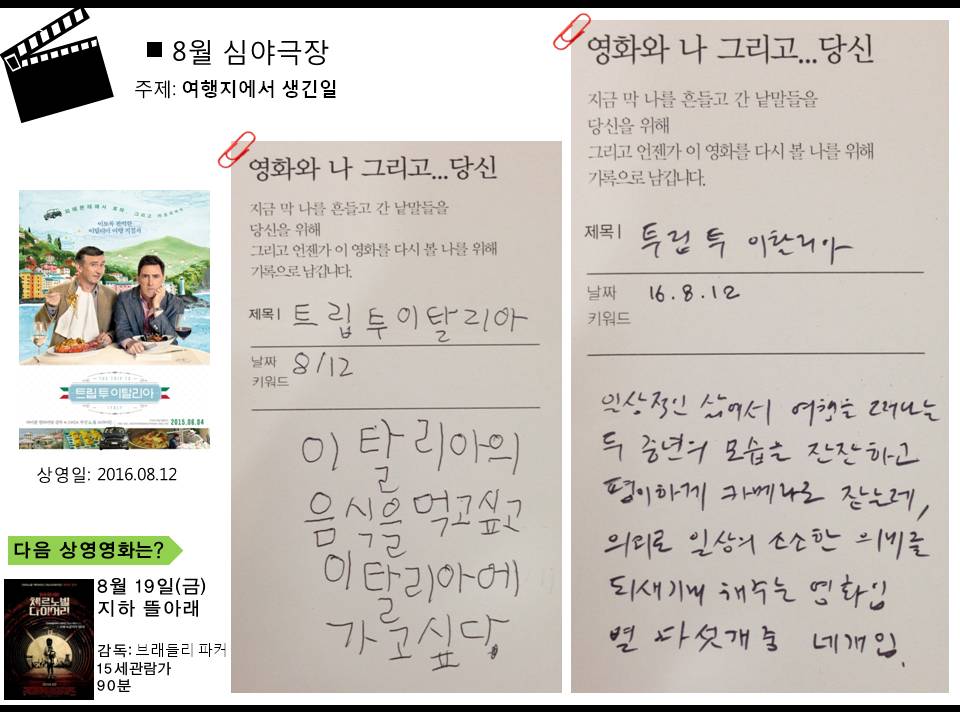 ■ 8월 심야극장
주제: 여행지에서 생긴일
이토록 완벽한
이탈리아 여행 지침서
THE TRIP TO
트립 투 이탈리아
ITALY
2015.06.04
상영일: 2016.08.12
다음 상영영화는?
체르노빌
다이어리
8월 19일(금)
지하 뜰아래
감독: 브래들리 파커
15세관람가
90분
영화와 나 그리고...당신
지금 막 나를 흔들고 간 낱말들을
당신을 위해
그리고 언젠가 이 영화를 다시 볼 나를 위해
기록으로 남깁니다.
제목| 트립 투 이탈리아
날짜 8/12
키워드
이탈리아의
음식을 먹고싶고
이탈리아에
가고싶당.
영화와 나 그리고...당신
지금 막 나를 흔들고 간 낱말들을
당신을 위해
그리고 언젠가 이 영화를 다시 볼 나를 위해
기록으로 남깁니다.
제목| 투립 투 이탈리아
날짜 16.8.12
키워드
일상적인 삶에서 여행을 떠나는
두 중년의 모습을 잔잔하고
평이하게 카메라로 잡는데,
의외로 일상의 소소한 의미를
되새기게 해주는 영화임
별 다섯개 중 네개임.